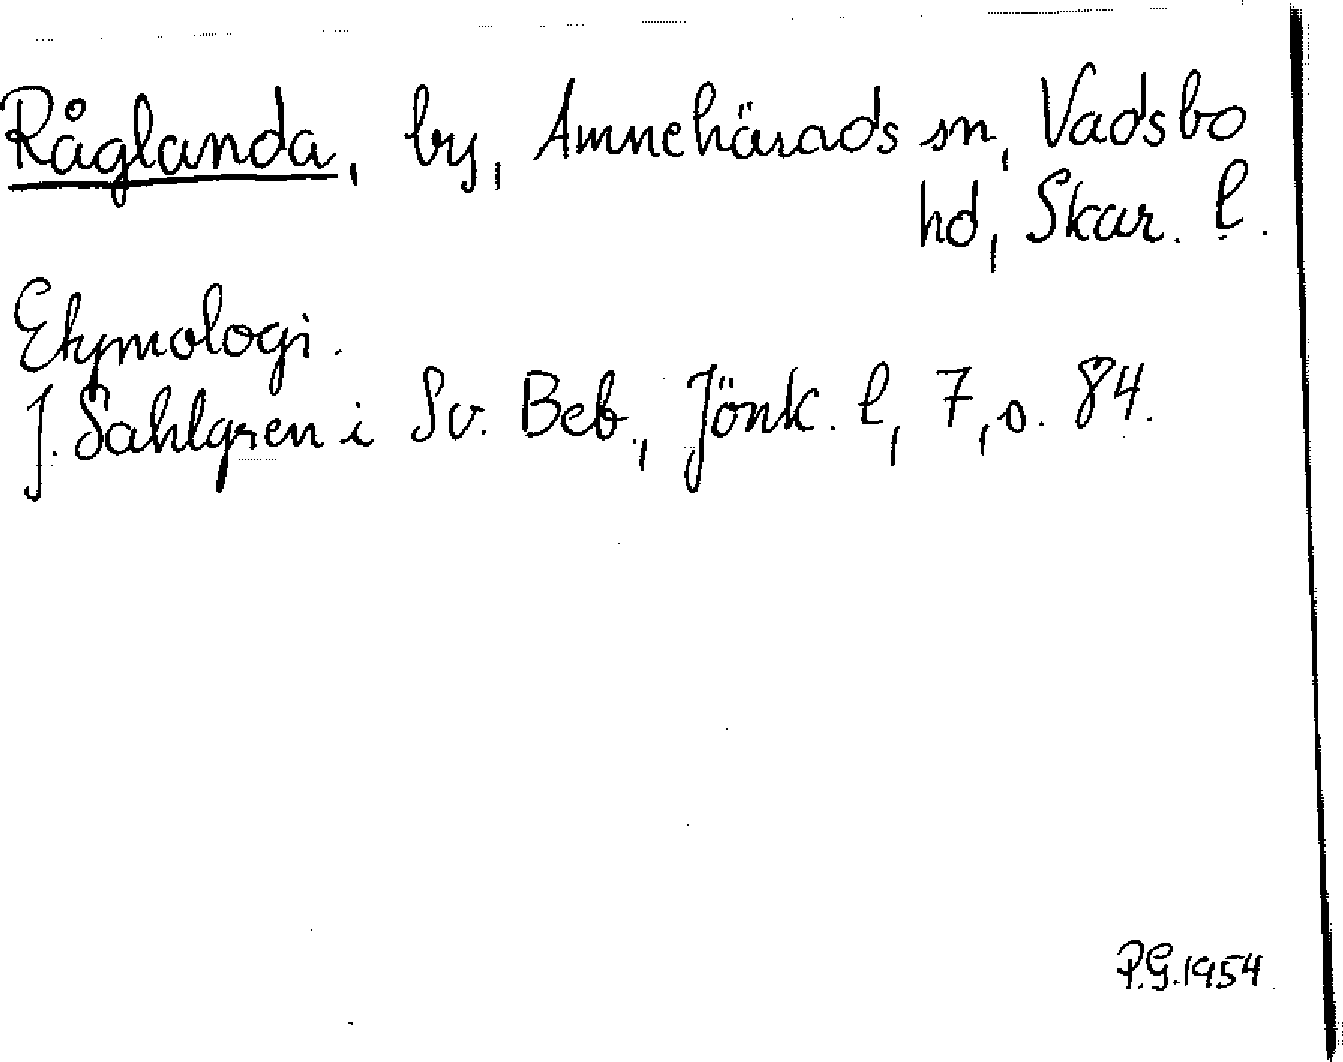 Råglanda, by, Amnehärads sn, Vadsbo
hd, Skar. l.
Etymologi.
J. Sahlgren i Sv. Beb., Jönk. l, 7, s. 84.
P.G. 1954